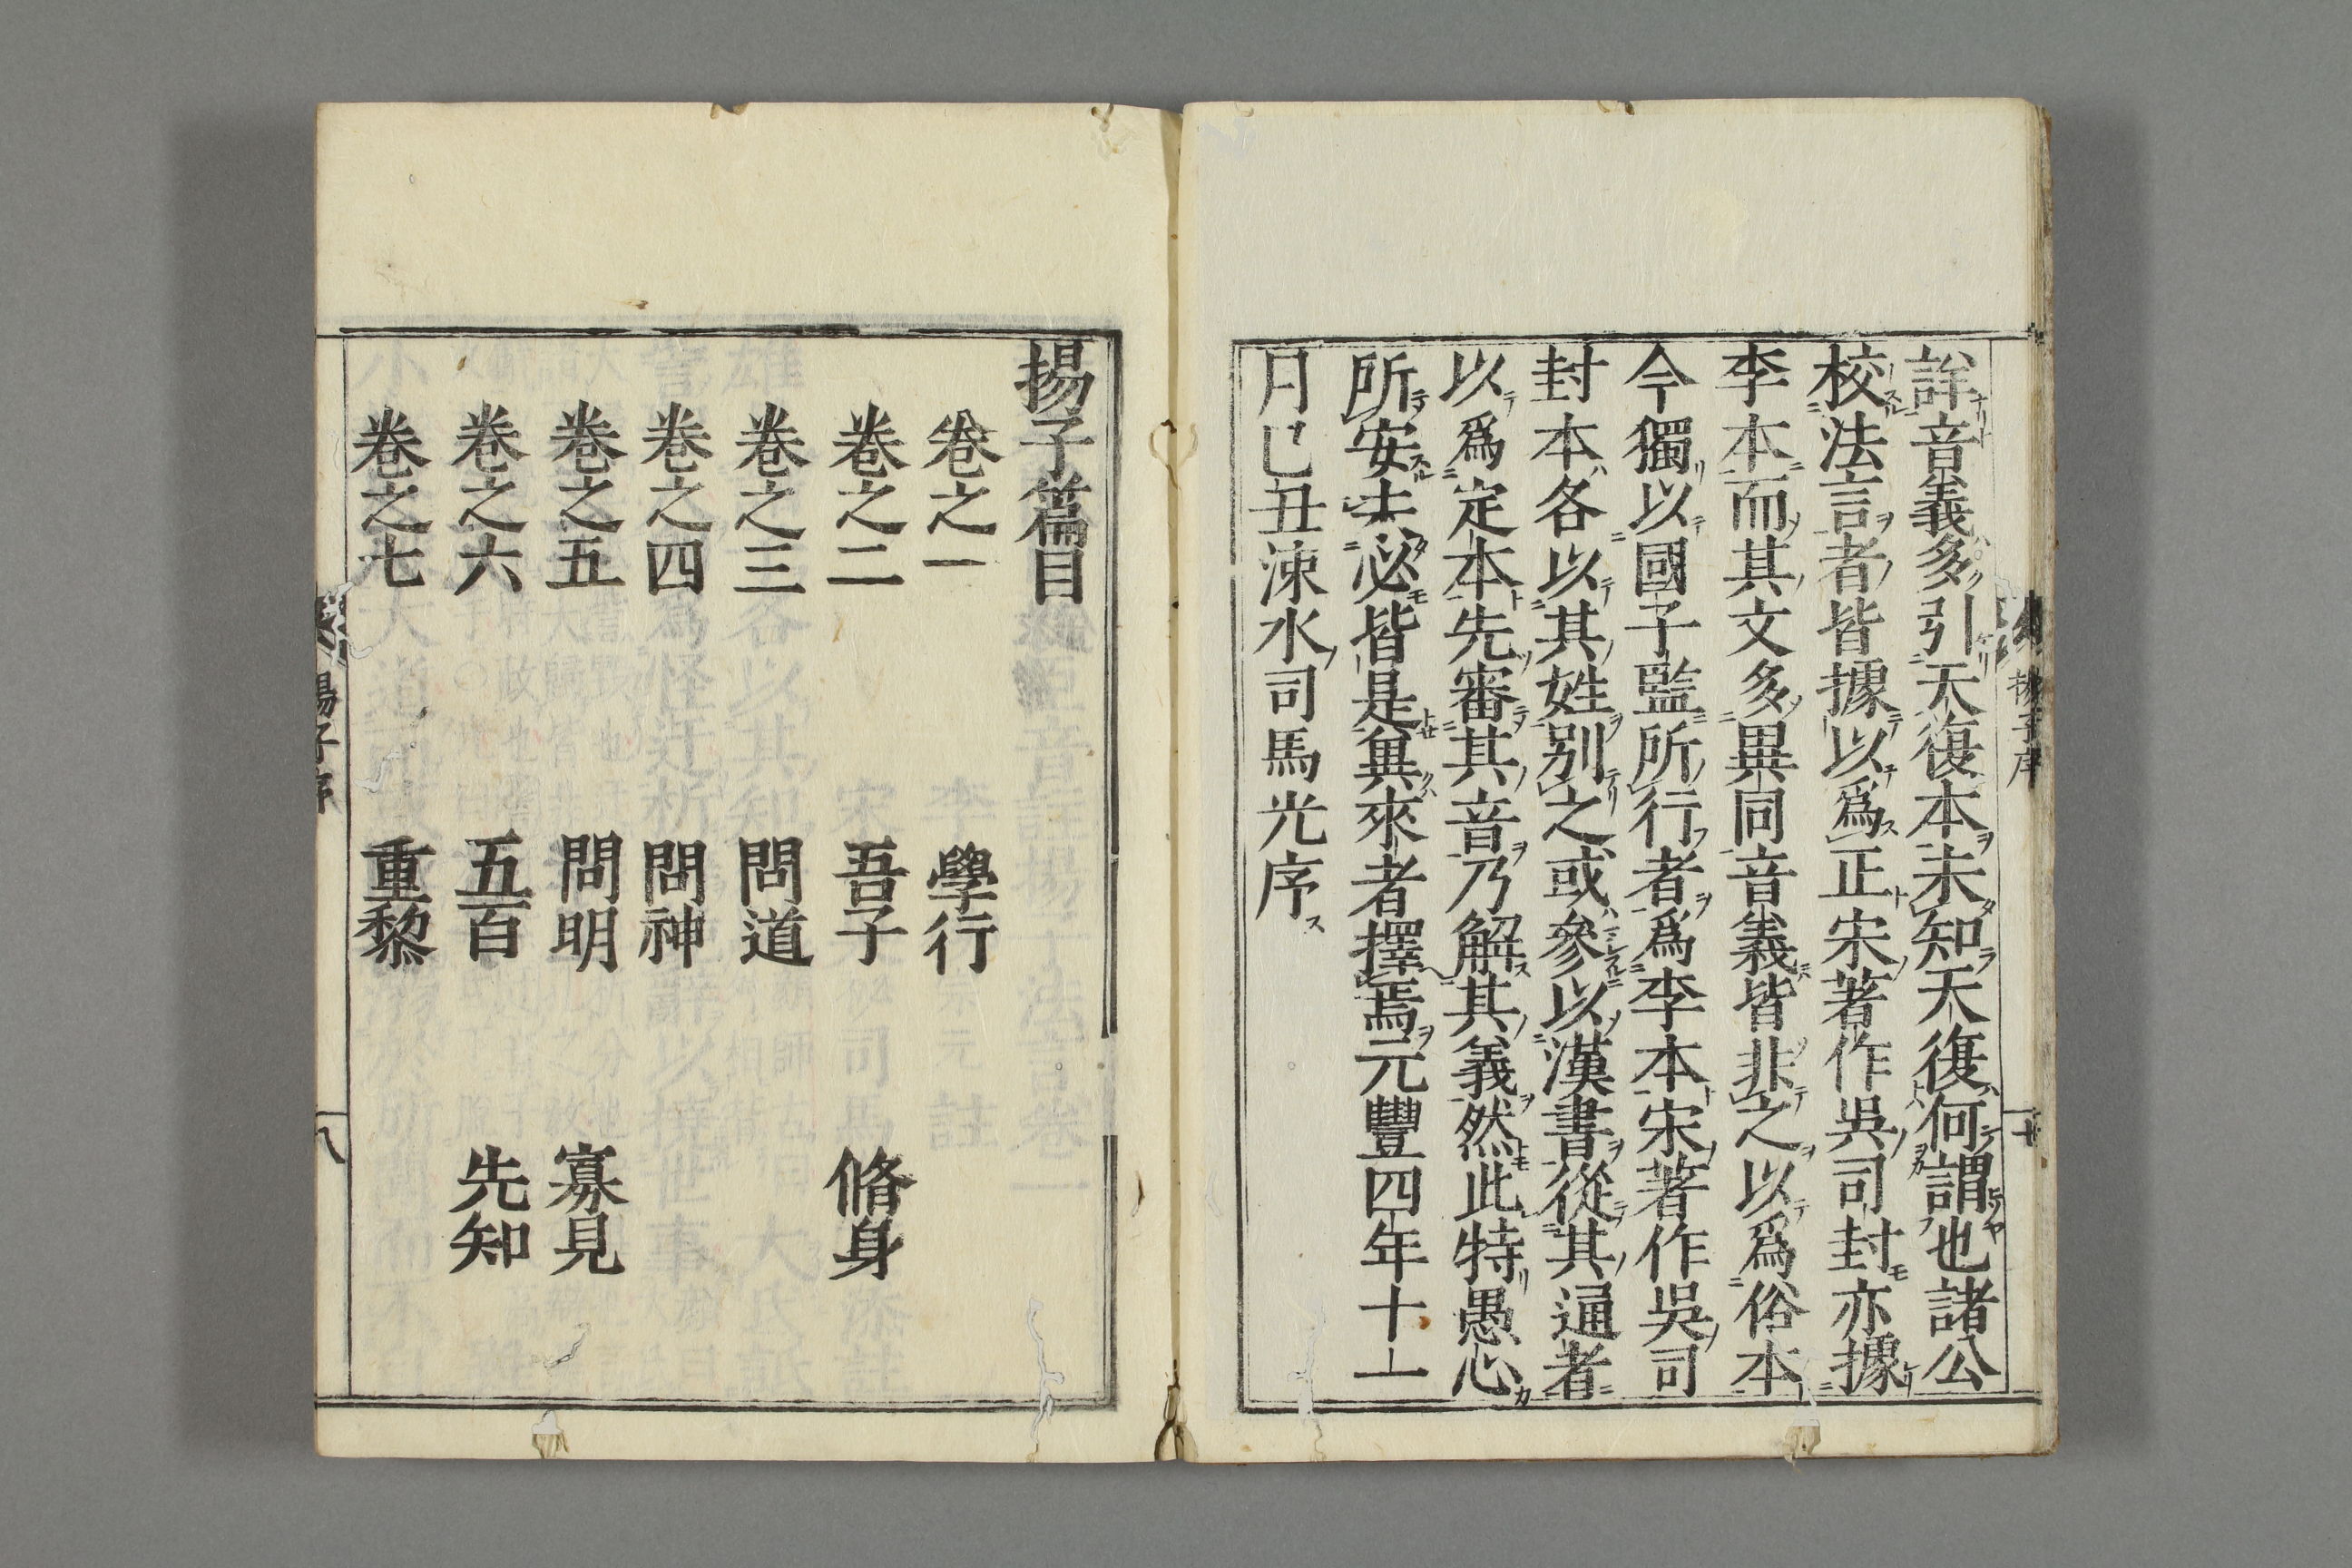 詳音義多引天復本未知天復何謂也諸公
校法言者皆據以爲正宋著作吳司封亦據
李本而其文多異同音義皆非之以爲俗本
今獨以國子監所行者爲李本宋著作吳司
封本各以其姓别之或參以漢書從其通者
以爲定本先審其音乃解其義然此特愚心
所安未必皆是兾來者擇焉元豐四年十一
月己丑涑水司馬光序
揚子篇目
卷之一 學行
卷之二 吾子 脩身
卷之三 問道
卷之四 問神
卷之五 問明 寡見
卷之六 五百 先知
卷之七 重黎
揚子序
八